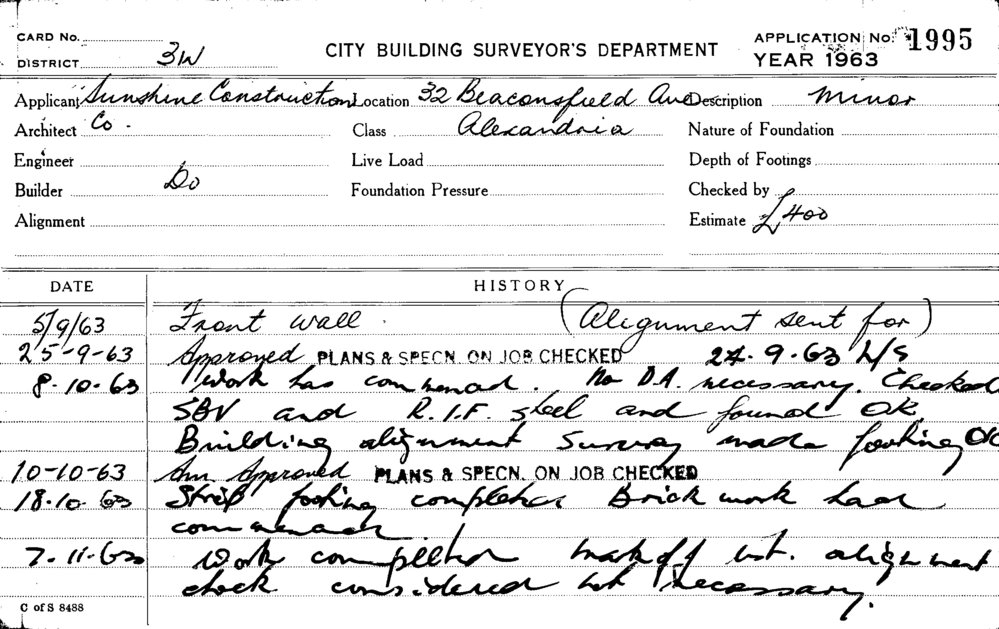 CARD No.
DISTRICT 3W
CITY BUILDING SURVEYOR'S DEPARTMENT
APPLICATION No. 1995
YEAR 1963
Applicant Sunshine Construction Location 32 Beaconsfield Ave Description Minor
Architect Co. Class Alexandria Nature of Foundation
Engineer Live Load Depth of Footings
Builder Do Foundation Pressure Checked by
Alignment Estimate £400
DATE HISTORY
5/9/63 Front wall. (Alignment sent for)
25-9-63 Approved PLANS & SPECN. ON JOB CHECKED 24.9.63
8.10.63 Work has commenced. No D.A. necessary. Checked
SBV and R.I.F. steel and found OK.
Building alignment survey made footing OK
10-10-63 Am Approved PLANS & SPECN. ON JOB CHECKED
18.10.63 Strip footing completed Brick work had
commenced.
7.11.63 Work completed alignment
check considered not necessary.
C of S 8488